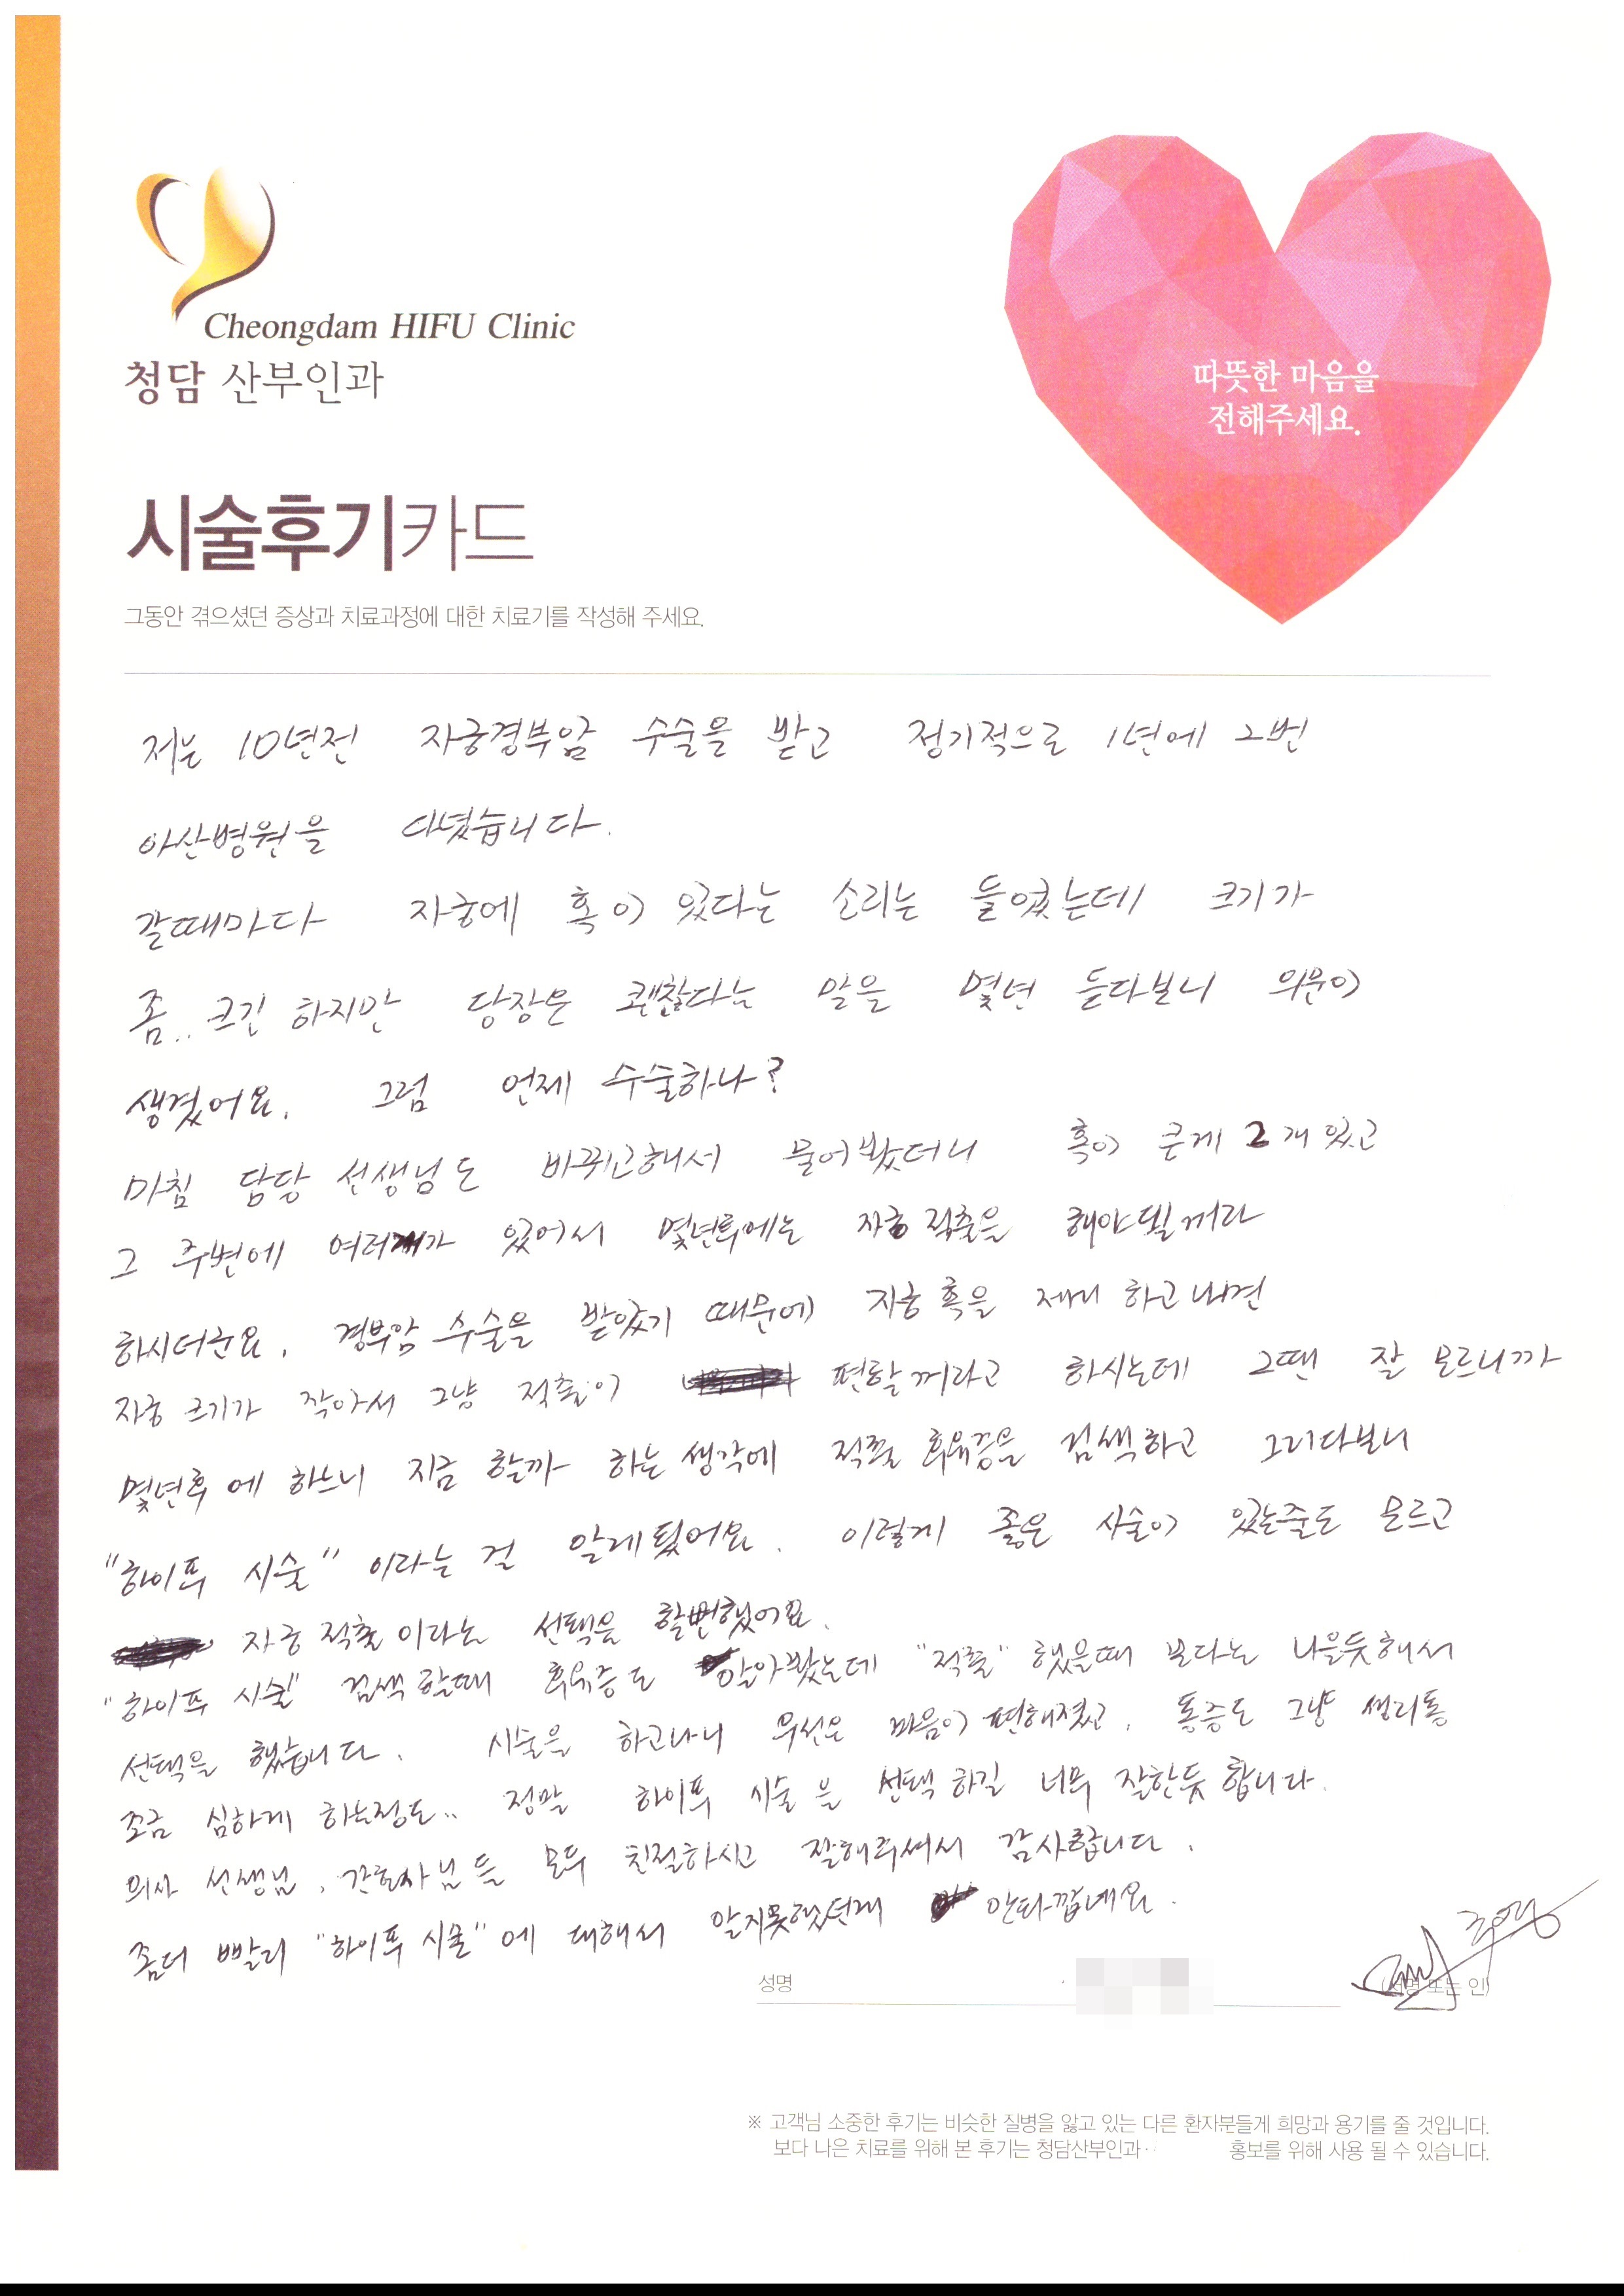 Cheongdam HIFU Clinic
청담 산부인과
따뜻한 마음을
전해주세요.
시술후기카드
그동안 겪으셨던 증상과 치료과정에 대한 치료기를 작성해 주세요.
저는 10년전 자궁경부암 수술을 받고 정기적으로 1년에 2번
아산병원을 다녔습니다.
갈때마다 자궁에 혹이 있다는 소리는 들었는데 크기가
좀.. 크긴 하지만 당장은 괜찮다는 말을 몇년 듣다보니 의문이
생겼어요. 그럼 언제 수술하나?
마침 담당 선생님도 바뀌고해서 물어봤더니 혹이 큰게 2개 있고
그 주변에 여러개가 있어서 몇년후에는 자궁적출을 해야될꺼라
하시더군요. 경부암 수술을 받았기 때문에 자궁혹을 제거하고나면
자궁 크기가 작아서 그냥 적출이 편할꺼라고 하시는데 그땐 잘 모르니까
몇년후에 하느니 지금 할까 하는 생각에 적출 후유증을 검색하고 그러다보니
"하이푸 시술" 이라는 걸 알게됐어요. 이렇게 좋은 시술이 있는줄도 모르고
자궁적출이라는 선택을 할뻔했어요.
"하이푸 시술" 검색할때 후유증도 알아봤는데 "적출" 했을때 보다는 나을듯해서
선택을 했습니다. 시술을 하고나니 우선은 마음이 편해졌고, 통증도 그냥 생리통
조금 심하게 하는정도.. 정말 하이푸 시술을 선택하길 너무 잘한듯 합니다.
의사 선생님, 간호사님들 모두 친절하시고 잘해주셔서 감사합니다.
좀더 빨리 "하이푸 시술"에 대해서 알지못했던게 안타깝네요.
성명 (서명 또는 인)
※ 고객님 소중한 후기는 비슷한 질병을 앓고 있는 다른 환자분들게 희망과 용기를 줄 것입니다.
보다 나은 치료를 위해 본 후기는 청담산부인과· 홍보를 위해 사용 될 수 있습니다.